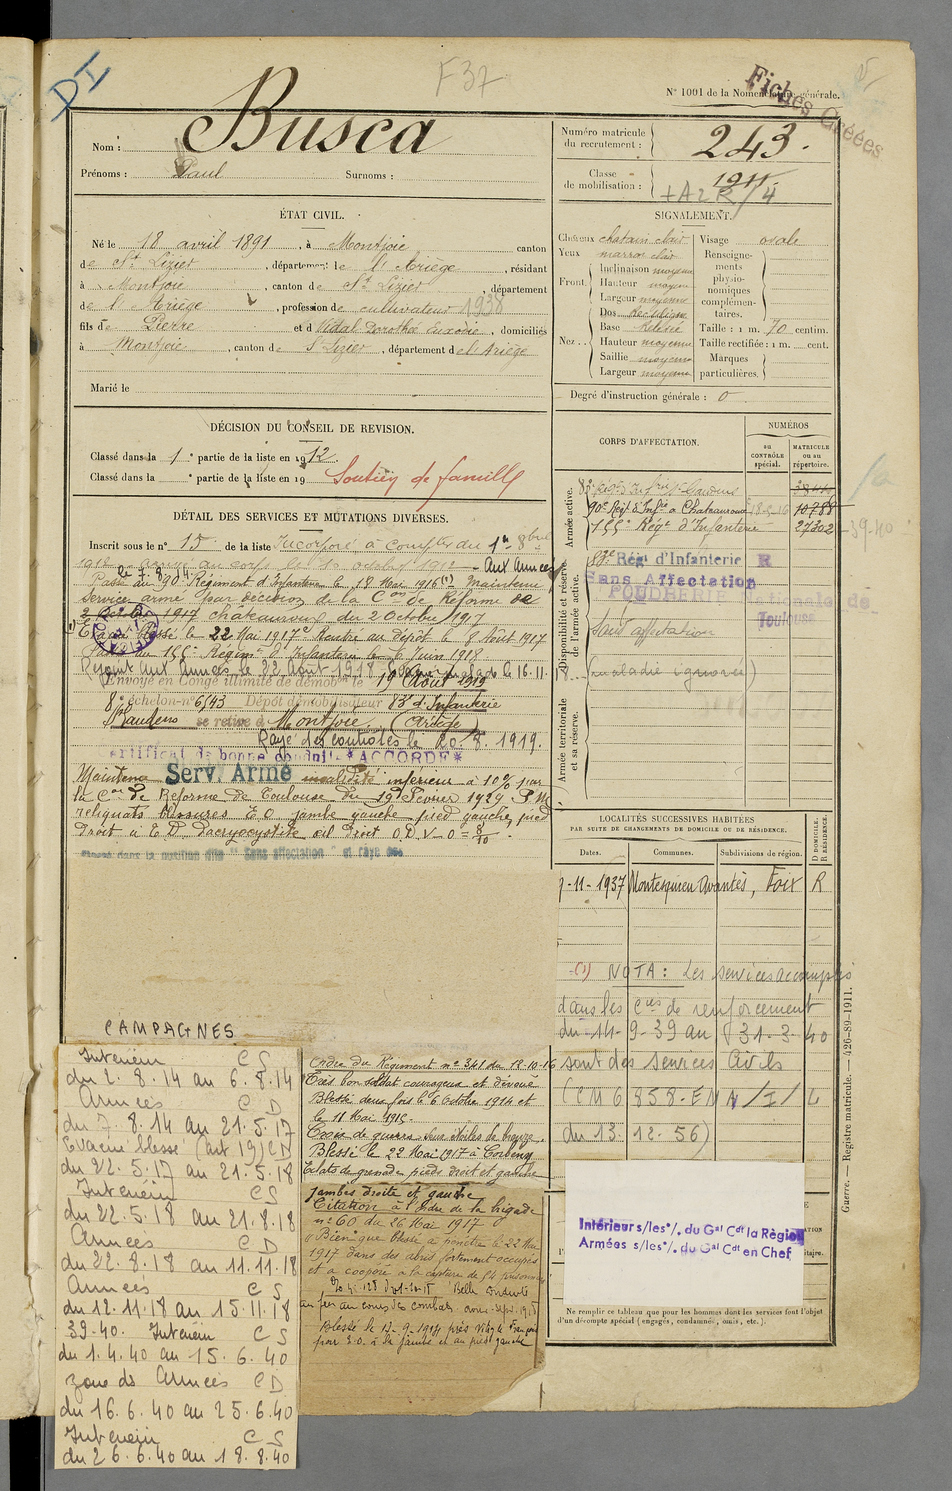 DI
F37
N° 1001 de la Nomenclature générale.
Fiches Créées
Nom : Busca
Prénoms : Paul Surnoms :
Numéro matricule du recrutement : 243.
Classe de mobilisation : 1911.
ÉTAT CIVIL.
Né le 18 avril 1891, à Montjoie canton
de St Lizier, département de l'Ariège, résidant
à Montjoie, canton de St Lizier, département
de l'Ariège, profession de cultivateur 1938
fils de Pierre et de Vidal Dorothée Eudoxie, domiciliés
à Montjoie, canton de St Lizier, département de l'Ariège
Marié le
SIGNALEMENT.
Cheveux chatain clair
Yeux marron clair
Front. Inclinaison moyenne
Hauteur moyenne
Largeur moyenne
Nez. Dos rectiligne
Base relevée
Hauteur moyenne
Saillie moyenne
Largeur moyenne
Visage ovale
Renseignements physionomiques complémentaires.
Taille : 1 m. 70 centim.
Taille rectifiée : 1 m. cent.
Marques particulières.
Degré d'instruction générale : 0
DÉCISION DU CONSEIL DE REVISION.
Classé dans la 1e partie de la liste en 1912.
Classé dans la e partie de la liste en 19
Soutien de famille
DÉTAIL DES SERVICES ET MUTATIONS DIVERSES.
Inscrit sous le n° 15 de la liste Incorporé à compter du 1er 8bre
1912 arrivé au corps le octobre 1912 Aux Armées
le 7.8.14
Passé au 90e Régiment d'Infanterie le 18 Mai 1916 (1) Maintenu
service armé par décision de la Con de Réforme de
Châteauroux du 2 Octobre 1917
Evacué blessé le 22 Mai 1917 Rentré au Dépôt le 8 Août 1917
Passé au 155e Régimt d'Infanterie le 6 Juin 1918
Rejoint aux Armées le 22 Août 1918
Envoyé en Congé illimité de démobon le 19 Août 1919
8e échelon n° 6543 Dépôt démobilisateur 83e d'Infanterie
St Gaudens se retire à Montjoie (Ariège)
Rayé des contrôles le 20.8.1919.
Certificat de bonne conduite "ACCORDÉ"
Maintenu Serv. Armé invalidité inférieur à 10% par
la Con de Réforme de Toulouse du 19 Février 1929 P.M.
reliquats blessures E.O. jambe gauche pied gauche, pied
Droit à E.D Dacryocystite œil Droit O.D.V-O = 8/10.
Classé dans la position dite "Sans affectation" et rayé des
CORPS D'AFFECTATION.
NUMÉROS
au CONTRÔLE spécial.
MATRICULE ou au répertoire.
Armée active.
90e Régt d'Infie à Chateauroux 18-5-16 10788
155e Régt d'Infanterie 27302
39-40
Disponibilité et réserve de l'armée active.
83e Régt d'Infanterie R
Sans Affectation
POUDRERIE Nationale de Toulouse
Sans affectation
(maladie ignorée)
Armée territoriale et sa réserve.
LOCALITÉS SUCCESSIVES HABITÉES
PAR SUITE DE CHANGEMENTS DE DOMICILE OU DE RÉSIDENCE.
Dates. Communes. Subdivisions de région. D DOMICILE. R RÉSIDENCE.
-11-1937 Montesquieu Avantès, Foix R
(1) NOTA : Les services accomplis
dans les Cies de renforcement
du 14-9-39 au 31-3-40
sont des services Civils
(CM 6 858-EMA/I/L
du 13.12.56)
Intérieur s/les°/. du Gal Cdt la Région
Armées s/les°/. du Gal Cdt en Chef
Ne remplir ce tableau que pour les hommes dont les services font l'objet
d'un décompte spécial (engagés, condamnés, omis, etc.).
Guerre. — Registre matricule. — 426-89-1911.
CAMPAGNES
Intérieur CS
du 2.8.14 au 6.8.14
Armées CD
du 7.8.14 au 21.5.17
Evacué blessé (art 19) CD
du 22.5.17 au 21.5.18
Intérieur CS
du 22.5.18 au 21.8.18
Armées CD
du 22.8.18 au 11.11.18
Armées CS
du 12.11.18 au 15.11.18
39-40. Intérieur CS
du 1.4.40 au 15.6.40
zone des Armées CD
du 16.6.40 au 25.6.40
Intérieur CS
du 26.6.40 au 18.8.40
Ordre du Régiment n° 341 du 18-10-16
Très bon soldat courageux et dévoué
Blessé deux fois le 6 Octobre 1914 et
le 11 Mai 1915.
Croix de guerre deux étoiles de bronze.
Blessé le 22 Mai 1917 à Corbeny
Eclats de grenade pieds droit et gauche
jambes droite et gauche
Citation à l'ordre de la brigade
n° 60 du 26 Mai 1917
"Bien que blessé a pénétré le 22 Mai
1917 dans des abris fortement occupés
et a coopéré à la capture de 14 prisonniers
"Belle conduite
au feu au cours des combats
Blessé le 13-9-1914 près Vitry le François
par E.O. à la jambe et au pied gauche